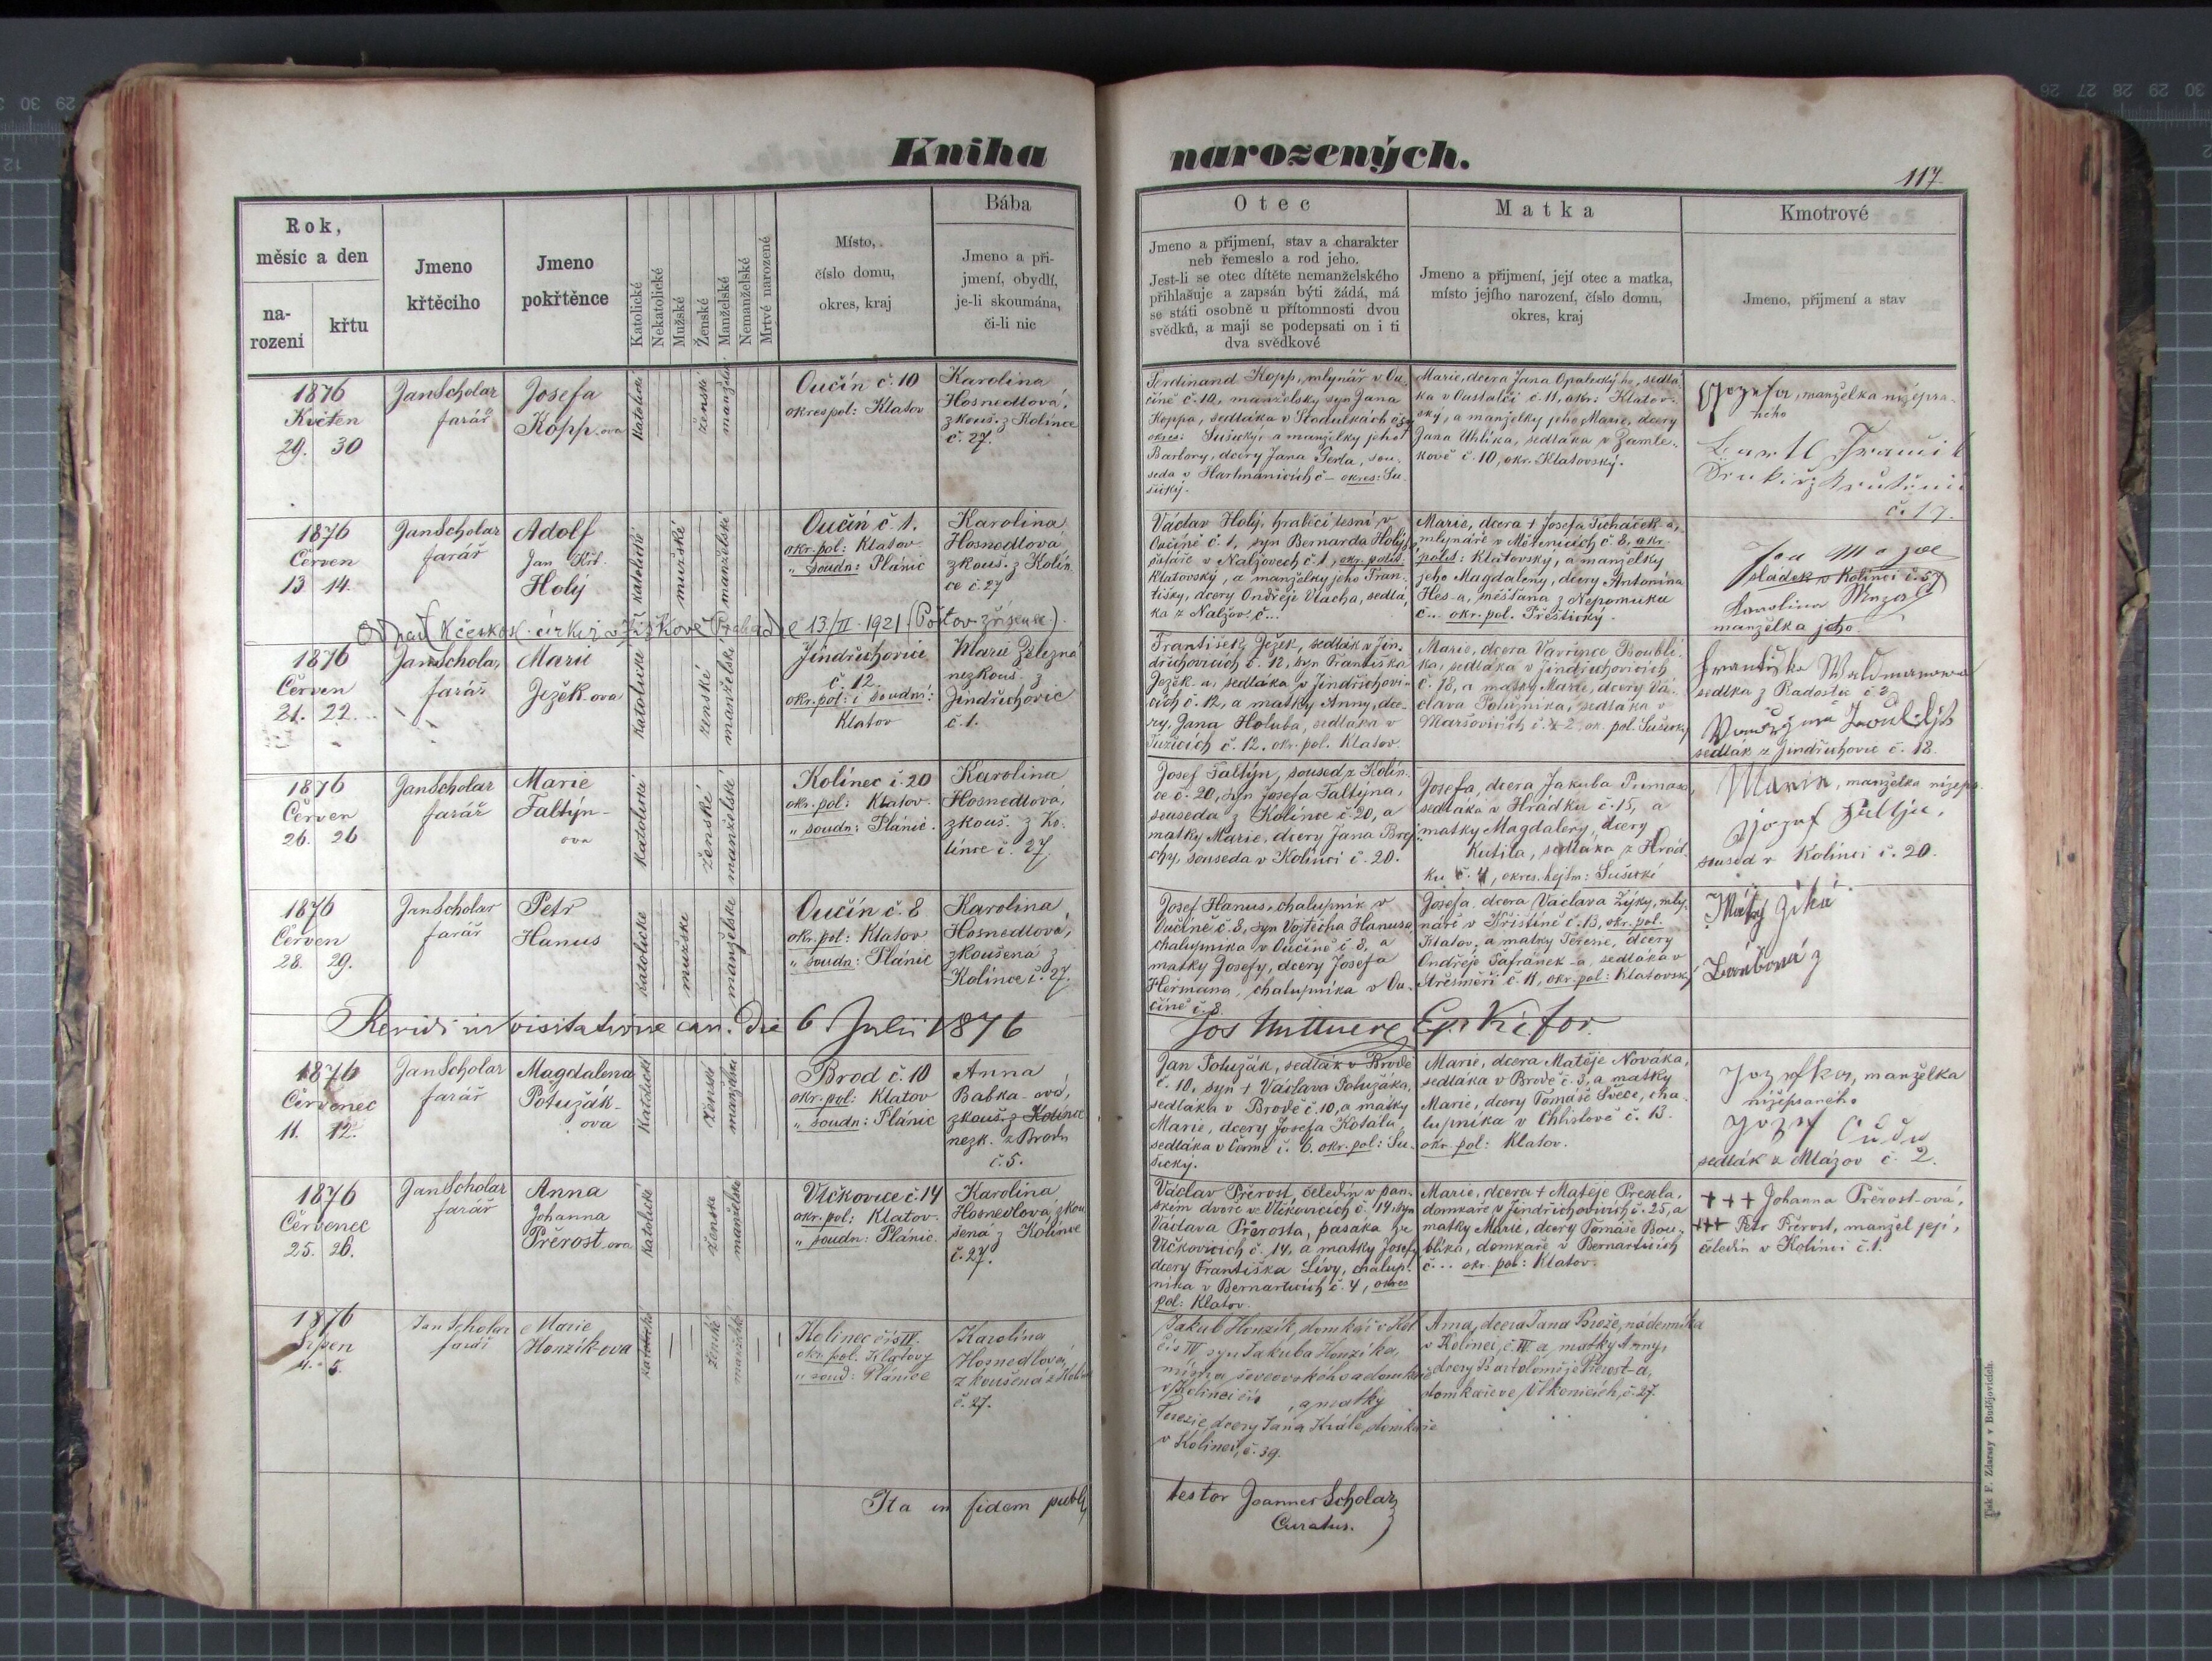 Kniha narozených.
117
Rok,
měsíc a den
na-
rozeni
křtu
Jmeno
křtěciho
Jmeno
pokřtěnce
Katolické
Nekatolické
Mužské
Ženské
Manželské
Nemanželské
Mrtvě narozené
Místo,
číslo domu,
okres, kraj
Bába
Jmeno a pří-
jmení, obydlí,
je-li skoumána,
či-li nic
Otec
Jmeno a přijmení, stav a charakter
neb řemeslo a rod jeho.
Jest-li se otec dítěte nemanželského
přihlašuje a zapsán býti žádá, má
se státi osobně u přítomnosti dvou
svědků, a mají se podepsati on i ti
dva svědkové
Matka
Jmeno a přijmení, její otec a matka,
místo jejího narození, číslo domu,
okres, kraj
Kmotrové
Jmeno, přijmení a stav
1876
Květen
29. 30
Jan Scholar
farář
Josefa
Kopp-ova
katolické
ženské
manželské
Oučín č. 10
okres pol: Klatov
Karolina
Hosnedlová,
zkouš. z Kolince
č. 27.
Ferdinand Kopp, mlynář v Ou-
číně č. 10, manželský syn Jana
Koppa, sedláka v Stodůlkách
okres: Sušický, a manželky jeho
Barbory, dcery Jana Perla, sou-
seda v Hartmanicích č – okres: Su-
šický.
Marie, dcera Jana Opaleckýho, sedlá-
ka v Oustalči č. 11, okr: Klatov-
ský, a manželky jeho Marie, dcery
Jana Uhlíka, sedláka v Zamle-
kově č. 10, okr. Klatovský.
Jozefa, manželka nížepsa-
ného
č. 17.
1876
Červen
13. 14.
Jan Scholar
farář
Adolf
Jan Křt.
Holý
katolické
mužské
manželské
Oučín č. 1.
okr. pol: Klatov
„ soudn: Plánic
Karolina
Hosnedlova
zkouš. z Kolin
ce č. 27
Václav Holý, hraběcí lesní v
Oučíně č. 1, syn Bernarda Holý,
v Nalžovech č. 1, okr. polit.
Klatovský, a manželky jeho Fran-
tišky, dcery Ondřeje Vlacha, sedlá-
ka z Nalžov č...
Marie, dcera + Josefa Ticháček-a,
mlynáře v Mětenicích č. 8, okr.
polit: Klatovský, a manželky
jeho Magdaleny, dcery Antonína
Hes-a, měšťana z Nepomuku
č... okr. pol. Přeštický.
sládek v Kolinci č. 57
Karolina
manželka jeho
Odpad (k českosl. církvi v Žižkově (Praha) dne 13/II. 1921
1876
Červen
21. 22.
Jan Scholar
farář
Marie
Ježek ova
katolické
ženské
manželské
Jindřichovice
č. 12
okr. pol: i soudní:
Klatov
Marie Železná
nezkouš. z
Jindřichovic
č. 1.
František Ježek, sedlák v Jin-
dřichovicích č. 12, syn Františka
Ježek-a, sedláka v Jindřichovi-
cích č. 12, a matky Anny, dce-
ry, Jana Holuba, sedláka v
Tužicích č. 12. okr. pol. Klatov.
Marie, dcera Vavřince Boubli-
ka, sedláka v Jindřichovicích
č. 18, a matky Marie, dcery Vá-
clava Potužníka, sedláka v
Maršovicích č. 2 ok. pol. Sušický
Františka Waldmanowa
sedlka z Radostic č 2
sedlák z Jindřichovic č. 18.
1876
Červen
26. 26
Jan Scholar
farář
Marie
Faltýn-
ova
katolické
ženské
manželské
Kolínec č. 20
okr. pol: Klatov.
„ soudn: Plánic.
Karolina
Hosnedlová,
zkouš. z Ko-
lince č. 27
Josef Faltýn, soused z Kolín-
ce č. 20, syn Josefa Faltýna,
souseda z Kolínce č. 20, a
matky Marie, dcery Jana Bre-
chy, souseda v Kolínci č. 20.
Josefa, dcera Jakuba
sedláka v Hrádku č. 15, a
matky Magdaleny, dcery
Kutila, sedláka z Hrád-
ku č. 4, okres. hejtm: Sušické
Marie, manželka nížeps.
Jozef Faltjn,
soused v Kolínci č. 20.
1876
Červen
28. 29.
Jan Scholar
farář
Petr
Hanus
katolické
mužské
manželské
Oučín č. 8
okr. pol: Klatov
„ soudn: Plánic
Karolina
Hosnedlová,
zkoušená z
Kolínce č. 27.
Josef Hanus, chalupník v
Oučíně č. 8, syn Vojtěcha Hanusa
chalupníka v Oučíně č 8, a
matky Josefy, dcery Josefa
Heřmana, chalupníka v Ou-
číně č. 8.
Josefa, dcera Václava Zýky, mly-
náře v Křištíně č. 13, okr. pol.
Klatov, a matky Terezie, dcery
Ondřeje Šafránek-a, sedláka v
Střešměři č. 11, okr. pol: Klatovský
Revidi in visitatione can. die 6 Julii 1876
1876
Červenec
11. 12.
Jan Scholar
farář
Magdalena
Potužák-
ova
katolické
ženské
manželské
Brod č. 10
okr. pol: Klatov
„ soudn: Plánic
Anna
Babka-ová,
zkouš. z Kolince
nezk. z Brodu
č. 5.
Jan Potužák, sedlák v Brodě
č. 10, syn + Václava Potužáka,
sedláka v Brodě č. 10, a matky
Marie, dcery Josefa Kotála,
sedláka v č. 6. okr. pol: Su-
šický.
Marie, dcera Matěje Nováka,
sedláka v Brodě č. 3, a matky
Marie, dcery Tomáše Švece, cha-
lupníka v Chlistově č. 13.
okr. pol: Klatov.
Jozefka, manželka
nížepsaného
Jozef
sedlák z Mlázov č. 2.
1876
Červenec
25. 26.
Jan Scholar
farář
Anna
Johanna
Přerost ova
katolické
ženské
manželské
Vlčkovice č. 14
okr. pol: Klatov.
„ soudn: Plánic.
Karolina
Hosnedlová, zkou-
šená z Kolínce
č. 27.
Václav Přerost, čeledín v pan-
ském dvoře ve Vlčkovicích č. 14, syn
Václava Přerosta, pasáka ve
Vlčkovicích č. 14, a matky Josefy
dcery Františka Lívy, chalup-
níka v Bernarticích č. 4, okres
pol: Klatov.
Marie, dcera + Matěje Prexla,
domkáře v Jindřichovicích č. 25, a
matky Marie, dcery Tomáše Bou-
blíka, domkáře v Bernarticích
č... okr. pol: Klatov.
+++ Johanna Přerost-ová,
+++ Petr Přerost, manžel její,
čeledín v Kolínci č. 1.
1876
Srpen
4. 5.
Jan Scholar
farář
Marie
Honzík-ova
katolické
ženské
manželské
Kolinec čís IV.
okr. pol. Klatovy
„ soud: Plánice
Karolina
Hosnedlová,
zkoušená z Kolince
č. 27.
Jakub Honzík, domkář v Kol.
čís IV syn Jakuba Honzíka,
mistra ševcovského a domkáře
v Kolinci čís , a matky
Terezie, dcery Jana Krále, domkáře
v Kolinci, č. 39.
Anna, dcera Jana Brože, nádeníka
v Kolinci, č. IV. a matky Anny,
dcery Bartoloměje Přerost-a,
domkáře ve Vlkonicích, č. 27.
Ita in fidem publ. testor Joannes Scholar
Curatus.
Tisk F. Zdarssy v Budějovicích.